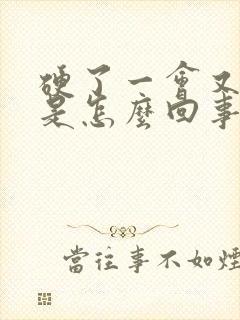 硬了一會又
是怎麼回事
當往事不如煙